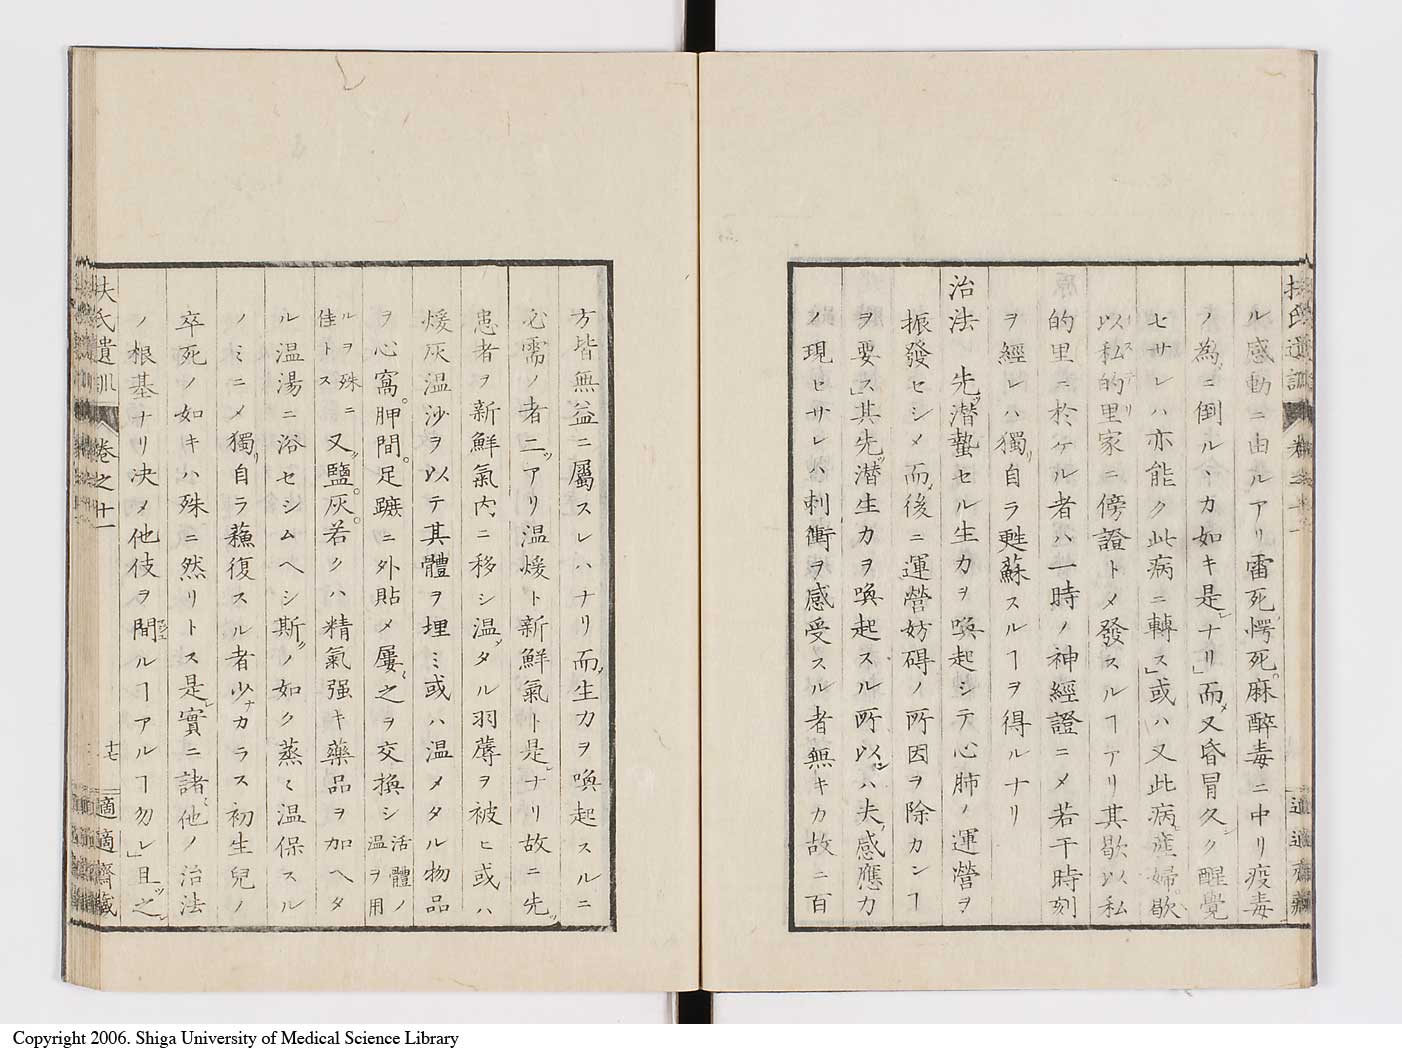 扶氏遺訓 卷之十一
ル感動ニ由ルアリ雷死愕死麻醉毒ニ中リ疫毒
ノ為ニ倒ルヽカ如キ是ナリ」而又昏冒久シク醒覺
セサレハ亦能ク此病ニ轉ス」或ハ又此病産婦歇
以私的里家ニ傍證トメ發スルヿアリ其歇以私
的里ニ於ケル者ハ一時ノ神經證ニメ若干時刻
ヲ經レハ獨自ラ甦蘇スルヿヲ得ルナリ
治法 先潜蟄セル生力ヲ喚起シテ心肺ノ運營ヲ
振發セシメ而後ニ運營妨碍ノ所因ヲ除カンヿ
ヲ要ス」其先潜生力ヲ喚起スル所以ハ夫感應力
ノ現ヒサレハ刺衝ヲ感受スル者無キカ故ニ百
方皆無益ニ屬スレハナリ而生力ヲ喚起スルニ
必需ノ者二アリ温煖ト新鮮氣ト是ナリ故ニ先
患者ヲ新鮮氣内ニ移シ温タル羽蓐ヲ被ヒ或ハ
煖灰温沙ヲ以テ其體ヲ埋ミ或ハ温メタル物品
ヲ心窩胛間足蹠ニ外貼メ屢之ヲ交換シ 活體ノ温ヲ用
ルヲ殊ニ佳トス 又鹽灰若クハ精氣强キ藥品ヲ加ヘタ
ル温湯ニ浴セシムヘシ斯ノ如ク蒸ミ温保スル
ノミニメ獨自ラ蘓復スル者少ナカラス初生兒ノ
卒死ノ如キハ殊ニ然リトス是實ニ諸他ノ治法
ノ根基ナリ决メ他伎ヲ間ルヿアルヿ勿レ」且之
扶氏遺訓 卷之十一 十七 適適齋藏